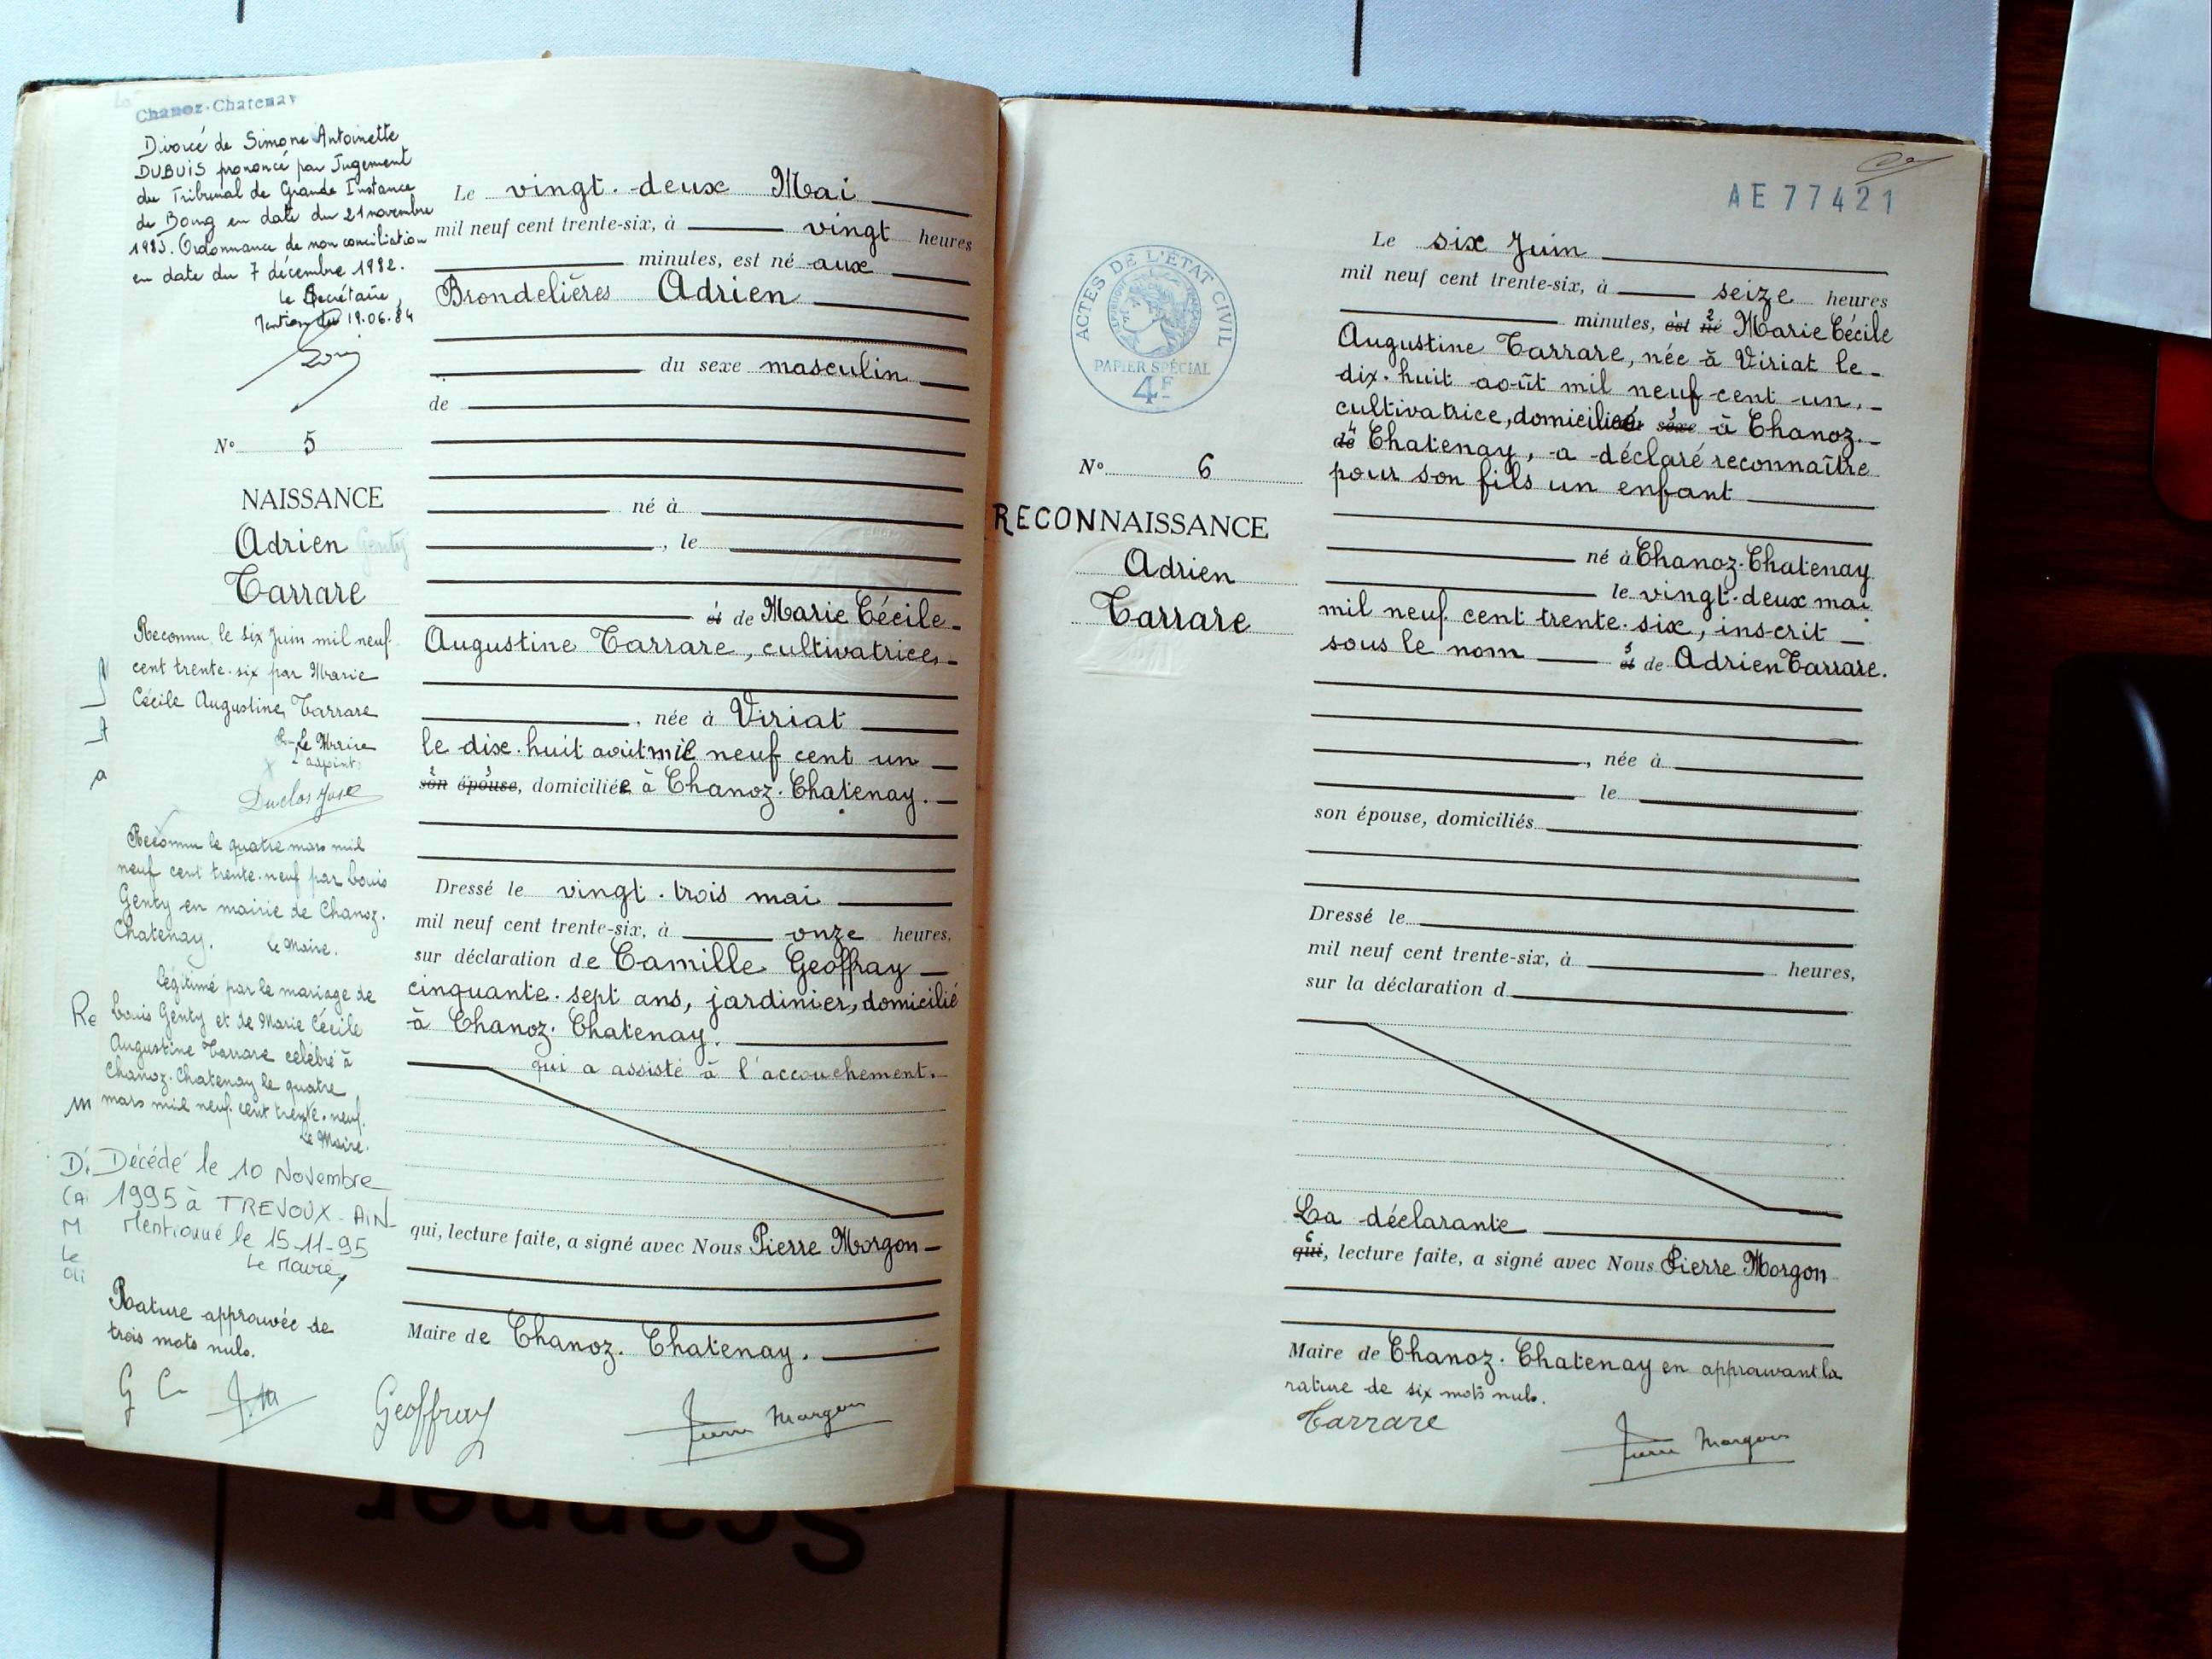 Chanoz-Chatenay
Divorcé de Simone Antoinette
DUBUIS prononcé par Jugement
du Tribunal de Grande Instance
de Bourg en date du 21 novembre
1983. Ordonnance de non conciliation
en date du 7 décembre 1982.
le Secrétaire,
Mention du 19.06.84
N° 5
NAISSANCE
Adrien Genty
Tarrare
Reconnu le six Juin mil neuf
cent trente-six par Marie
Cécile Augustine Tarrare
Le Maire
adjoint
Duclos
Reconnu le quatre mars mil
neuf cent trente-neuf par Louis
Genty en mairie de Chanoz-
Chatenay. Le Maire.
Légitimé par le mariage de
Louis Genty et de Marie Cécile
Augustine Tarrare célébré à
Chanoz-Chatenay le quatre
mars mil neuf cent trente-neuf.
Le Maire.
Décédé le 10 Novembre
1995 à TREVOUX-AIN-
Mentionné le 15-11-95
Le Maire,
Rature approuvée de
trois mots nuls.
G C
Le vingt-deux Mai
mil neuf cent trente-six, à vingt heures
minutes, est né aux
Brondelières Adrien
du sexe masculin
de
né à
, le
et de Marie Cécile
Augustine Tarrare, cultivatrice,
, née à Viriat
le dix-huit août mil neuf cent un
son épouse, domiciliée à Chanoz-Chatenay.
Dressé le vingt-trois mai
mil neuf cent trente-six, à onze heures,
sur déclaration de Camille Geoffray
cinquante-sept ans, jardinier, domicilié
à Chanoz-Chatenay.
qui a assisté à l'accouchement.
qui, lecture faite, a signé avec Nous Pierre Morgon
Maire de Chanoz-Chatenay.
Geoffray Pierre Morgon
AE 77421
ACTES DE L'ÉTAT CIVIL
PAPIER SPÉCIAL
4F
N° 6
RECONNAISSANCE
Adrien
Tarrare
Le six Juin
mil neuf cent trente-six, à seize heures
minutes, est né Marie Cécile
Augustine Tarrare, née à Viriat le
dix-huit août mil neuf cent un,
cultivatrice, domiciliée sexe à Chanoz-
de Chatenay, a déclaré reconnaître
pour son fils un enfant
né à Chanoz-Chatenay
le vingt-deux mai
mil neuf cent trente-six, inscrit
sous le nom et de Adrien Tarrare.
, née à
le
son épouse, domiciliés
Dressé le
mil neuf cent trente-six, à heures,
sur la déclaration d
La déclarante
qui, lecture faite, a signé avec Nous Pierre Morgon
Maire de Chanoz-Chatenay en approuvant la
rature de six mots nuls.
Tarrare Pierre Morgon
Scanner